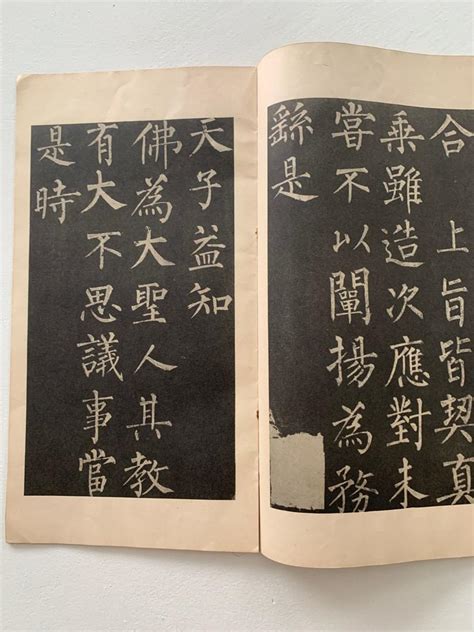 合 上旨皆契真
乘雖造次應對未
嘗不以闡揚為務
繇是
天子益知
佛為大聖人其教
有大不思議事當
是時